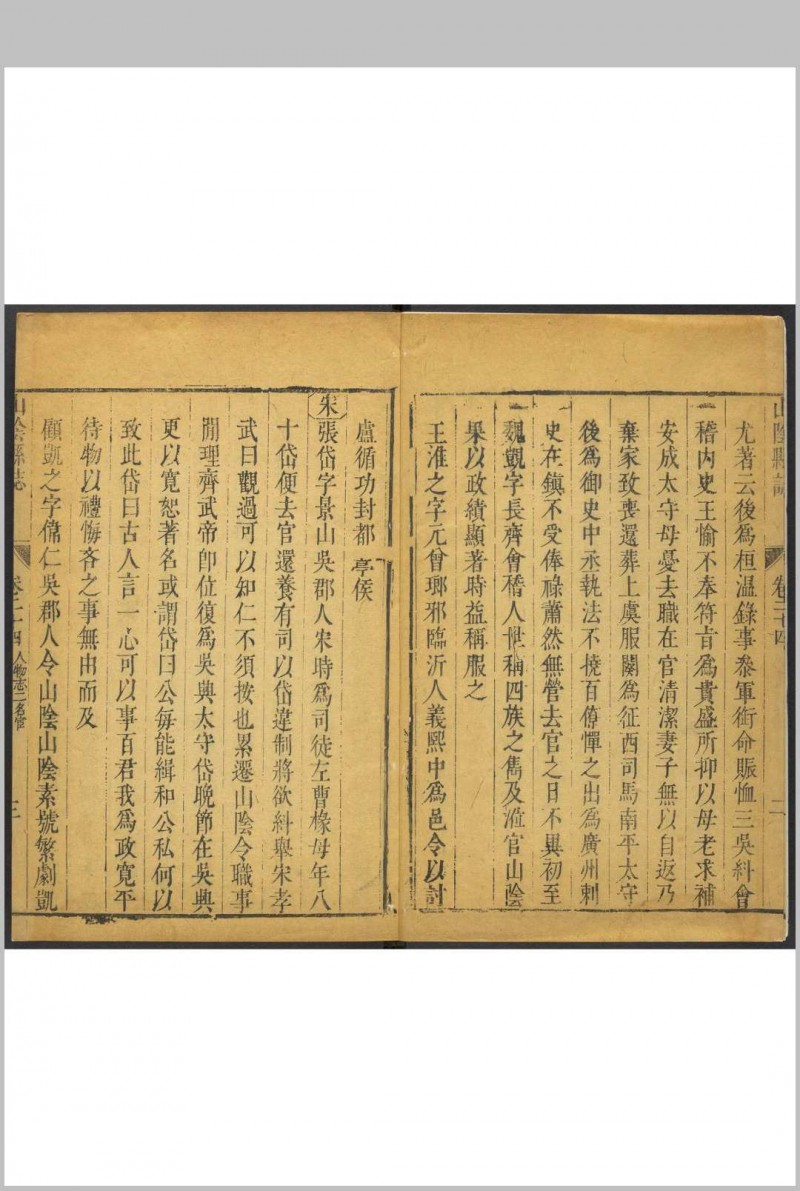 山陰縣志
卷二十四
二
尤著云後爲桓溫錄事叅軍銜命賑恤三吳糾會
稽內史王愉不奉符㫖爲貴盛所抑以母老求補
安成太守母憂去職在官清潔妻子無以自返乃
棄家致喪還葬上虞服闋爲征西司馬南平太守
後爲御史中丞執法不撓百僚憚之出爲廣州刺
史在鎮不受俸祿蕭然無營去官之日不異初至
魏覬字長齊會稽人世稱四族之雋及涖官山陰
果以政績顯著時益稱服之
王淮之字元曾瑯邪臨沂人義熙中爲邑令以討
盧循功封都亭侯
宋
張岱字景山吳郡人宋時爲司徒左曹椽母年八
十岱便去官還養有司以岱違制將欲糾舉宋孝
武曰觀過可以知仁不須按也累遷山陰令職事
閒理齊武帝卽位復爲吳興太守岱晩節在吳興
更以寬恕著名或謂岱曰公每能緝和公私何以
致此岱曰古人言一心可以事百君我爲政寛平
待物以禮悔吝之事無由而及
顧凱之字偉仁吳郡人令山陰山陰素號繁劇凱
山陰縣志
卷二十四
人物志二名宦
三